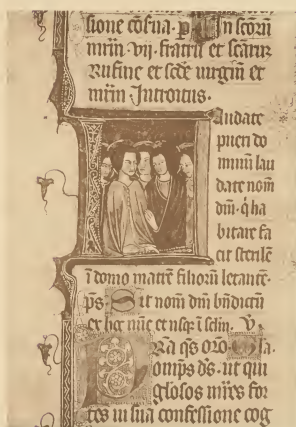 sione cōsua. p̄ In scōrum
mrīm vij. fratrū et scārum
Rufine et scde uirginū et
mrīm Introitus.
Laudate
pueri do
minū lau
date nom̄
dm̄. q̄ ha
bitare fa
cit sterilē
ī domo matrē filiorū letantē.
ps. Sit nom̄ dm̄ bn̄dictū
ex hoc nūc et usq̄ ī sclm̄. V.
Pra qs oīo
omps ds. ut qui
glosos mr̄es for
tes in sua confessione cog